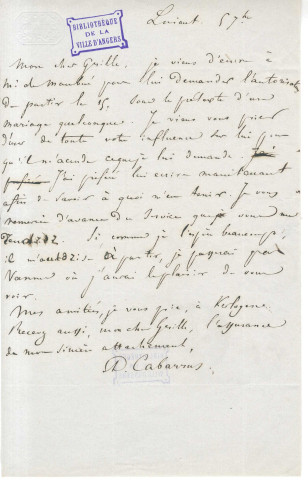 BIBLIOTHÈQUE
DE LA
VILLE D'ANGERS
Lorient 5 7bre
Mon cher Grille, je viens d'écrire à
Mr de pour lui demander l'autorisation
de partir le 15, sous le prétexte d'un
mariage quelconque. Je viens vous prier
d'user de toute votre influence sur lui pour
qu'il m'accorde ce que je lui demande.
J'ai préféré lui écrire maintenant
afin de savoir à quoi m'en tenir. Je vous
remercie d'avance du service que vous me
rendrez. Si comme je l'espère beaucoup,
il m'autorise à partir, je passerai par
Vannes où j'aurai le plaisir de vous
voir.
Mes amitiés, je vous prie, à
Recevez aussi, mon cher Grille, l'assurance
de mon sincère attachement,
D. Cabarrus